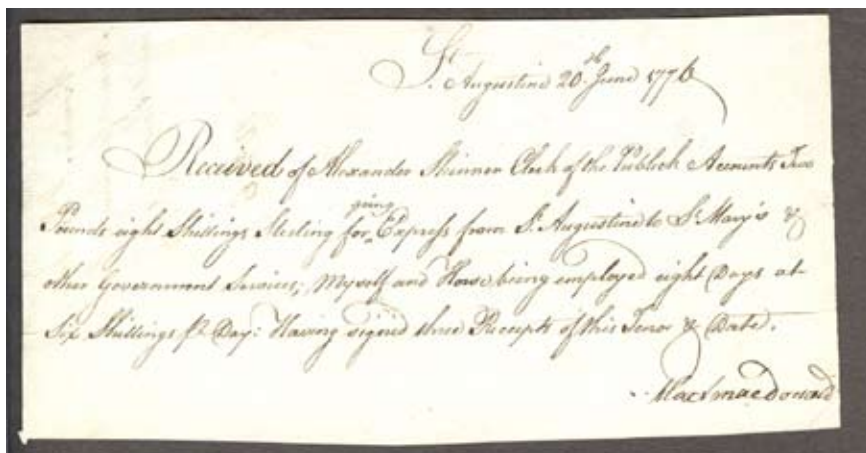 St. Augustine 20th June 1776
Received of Alexander Skinner Clerk of the Publick Accounts Two
going
Pounds eight Shillings Sterling for Express from St. Augustine to St. Mary's &
other Government Services; Myself and Horse being employed eight Days at
Six Shillings pr Day: Having signed three Receipts of this Tenor & Date.
Macdonald